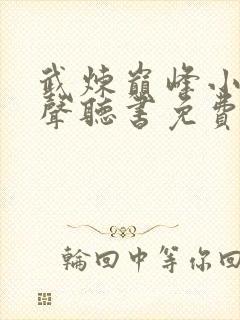 武煉巔峰小
聲聽書免費
輪回中等你回